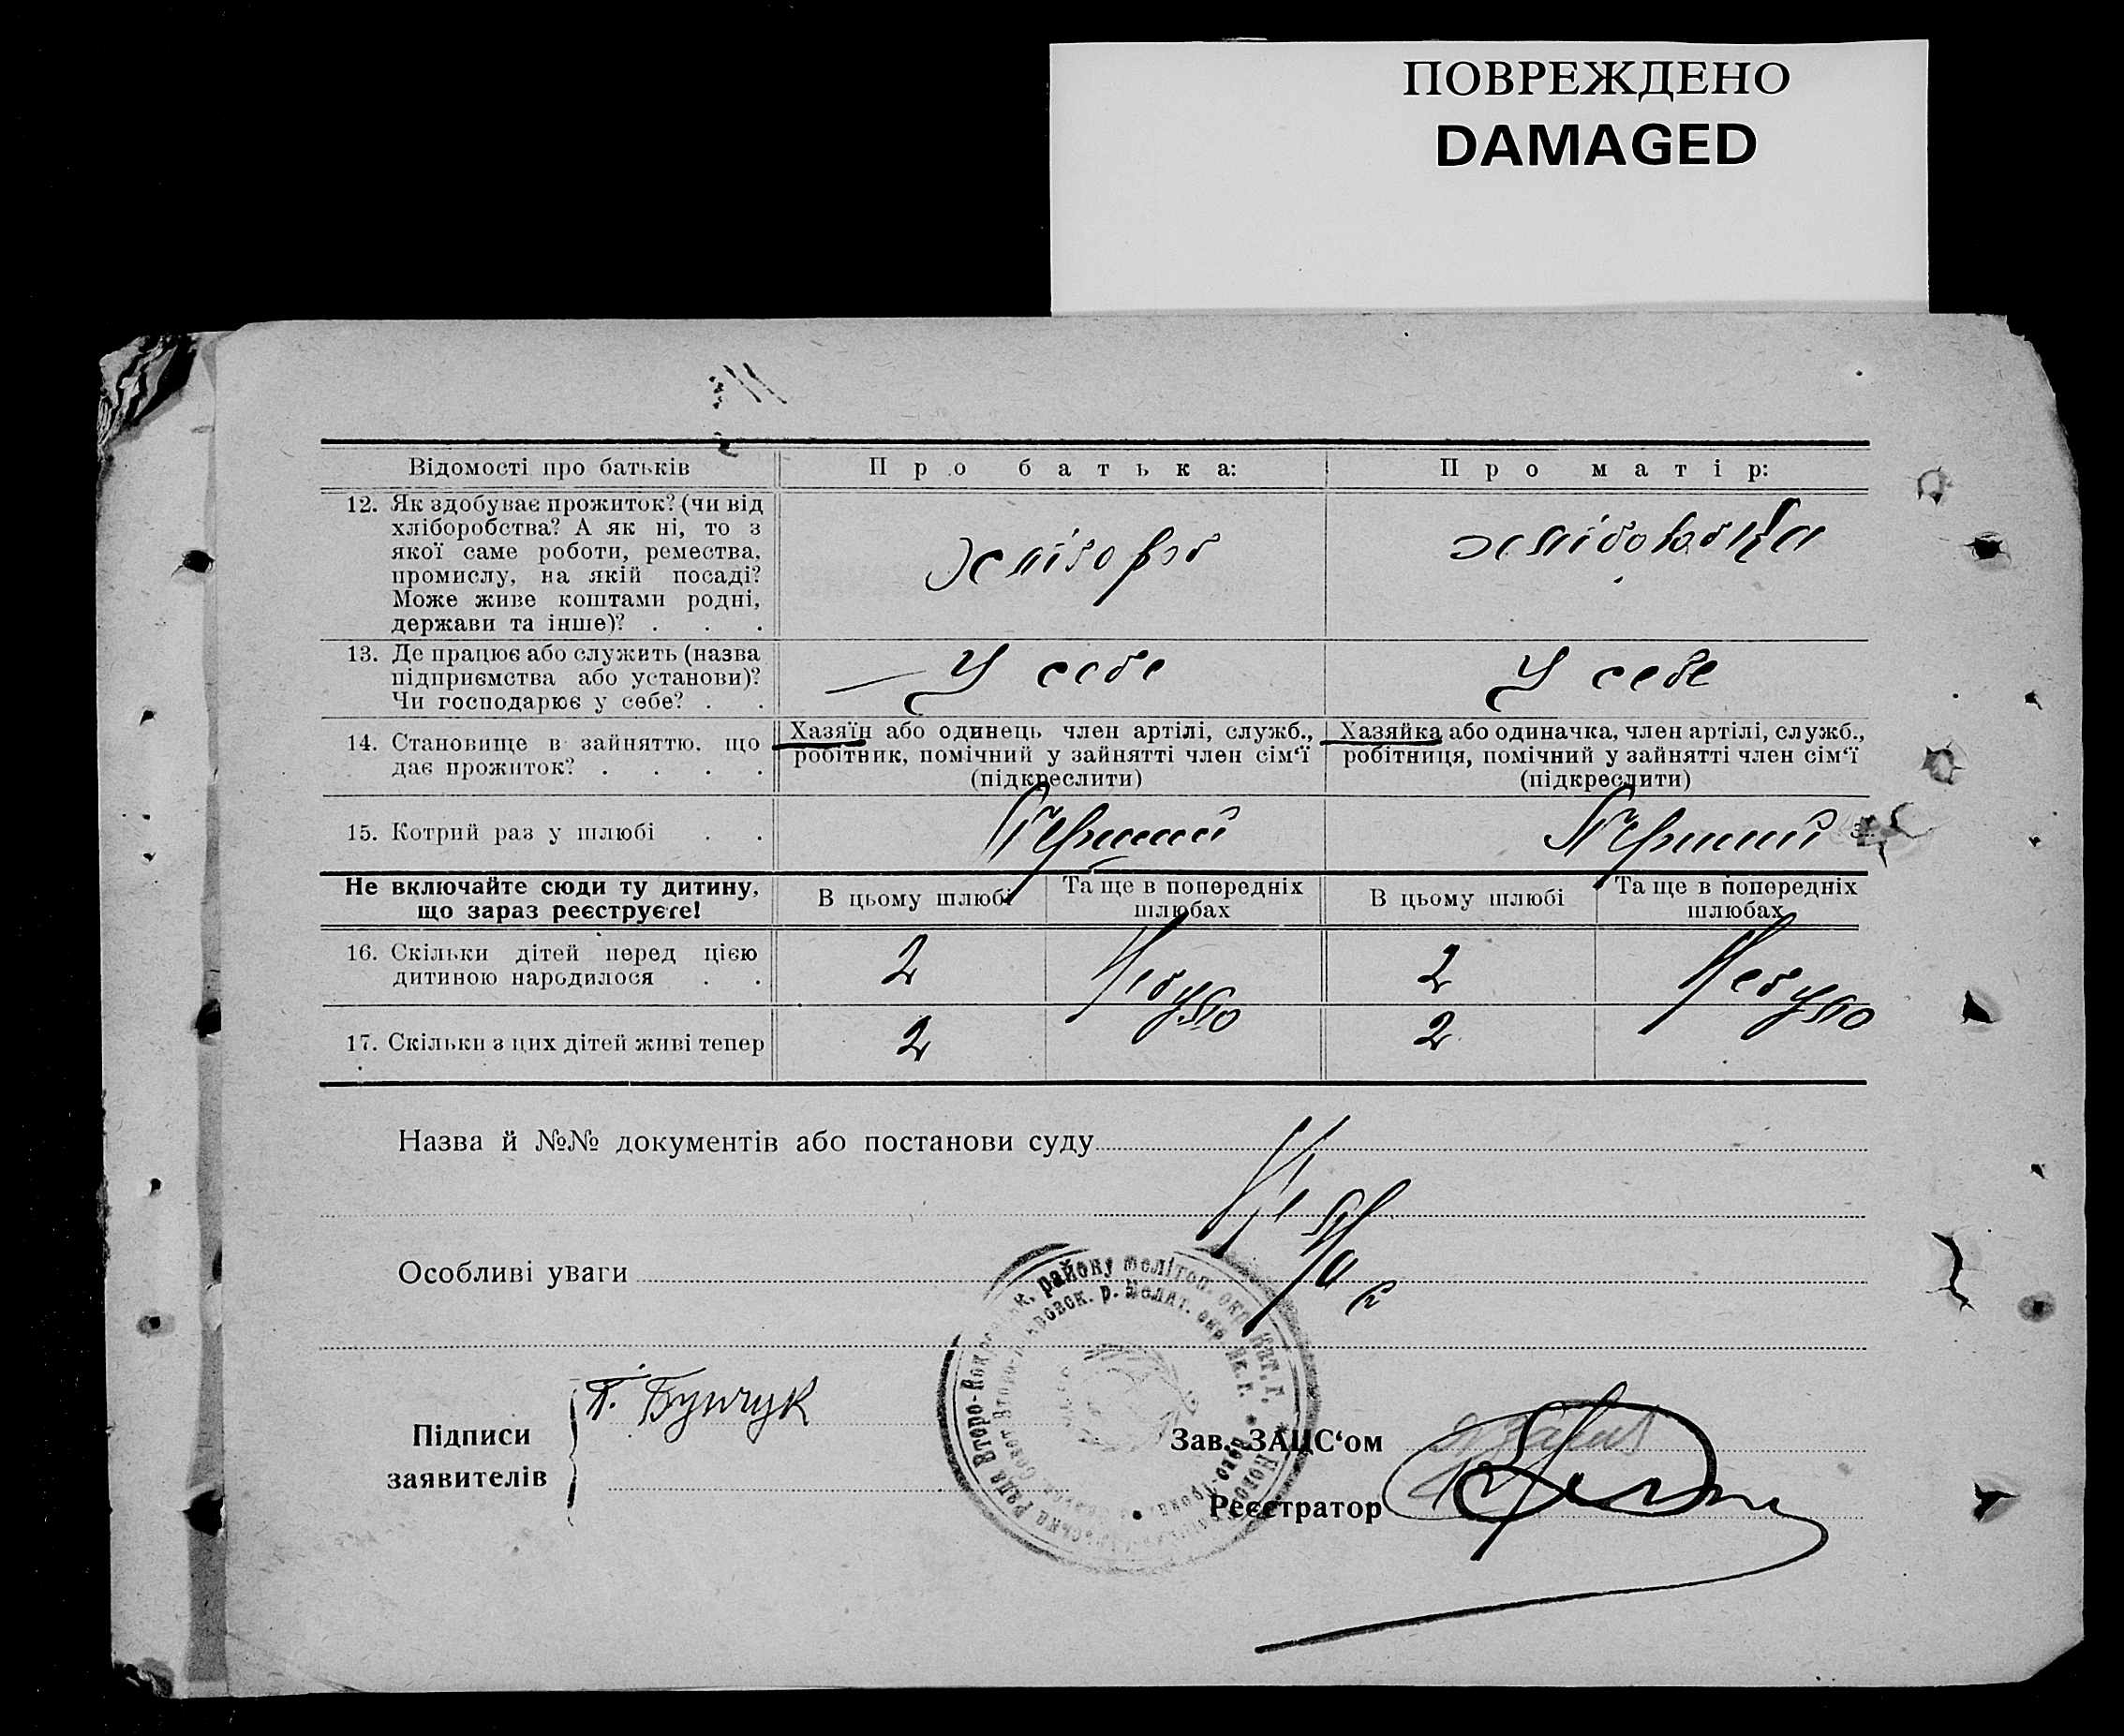 ПОВРЕЖДЕНО
DAMAGED
Відомості про батьків
Про батька:
Про матір:
12. Як здобуває прожиток? (чи від
хліборобства? А як ні, то з
якої саме роботи, ремества,
промислу, на якій посаді?
Може живе коштами родні,
держави та інше)? . . .
хлібороб
хліборобка
13. Де працює або служить (назва
підприємства або установи)?
Чи господарює у себе? . .
У себе
У себе
14. Становище в зайняттю, що
дає прожиток? . . . .
Хазяїн або одинець член артілі, служб.,
робітник, помічний у зайнятті член сім‘ї
(підкреслити)
Хазяйка або одиначка, член артілі, служб.,
робітниця, помічний у зайнятті член сім‘ї
(підкреслити)
15. Котрий раз у шлюбі . .
Перший
Перший
Не включайте сюди ту дитину,
що зараз реєструєте!
В цьому шлюбі
Та ще в попередніх
шлюбах
В цьому шлюбі
Та ще в попередніх
шлюбах
16. Скільки дітей перед цією
дитиною народилося . .
2
Небуло
2
Небуло
17. Скільки з цих дітей живі тепер
2
2
Назва й №№ документів або постанови суду
Особливі уваги
району Мелітоп. окр.
р. Мелит. окр.
Підписи
заявителів
Т. Бунчук
Зав. ЗАЦС‘ом
Реєстратор